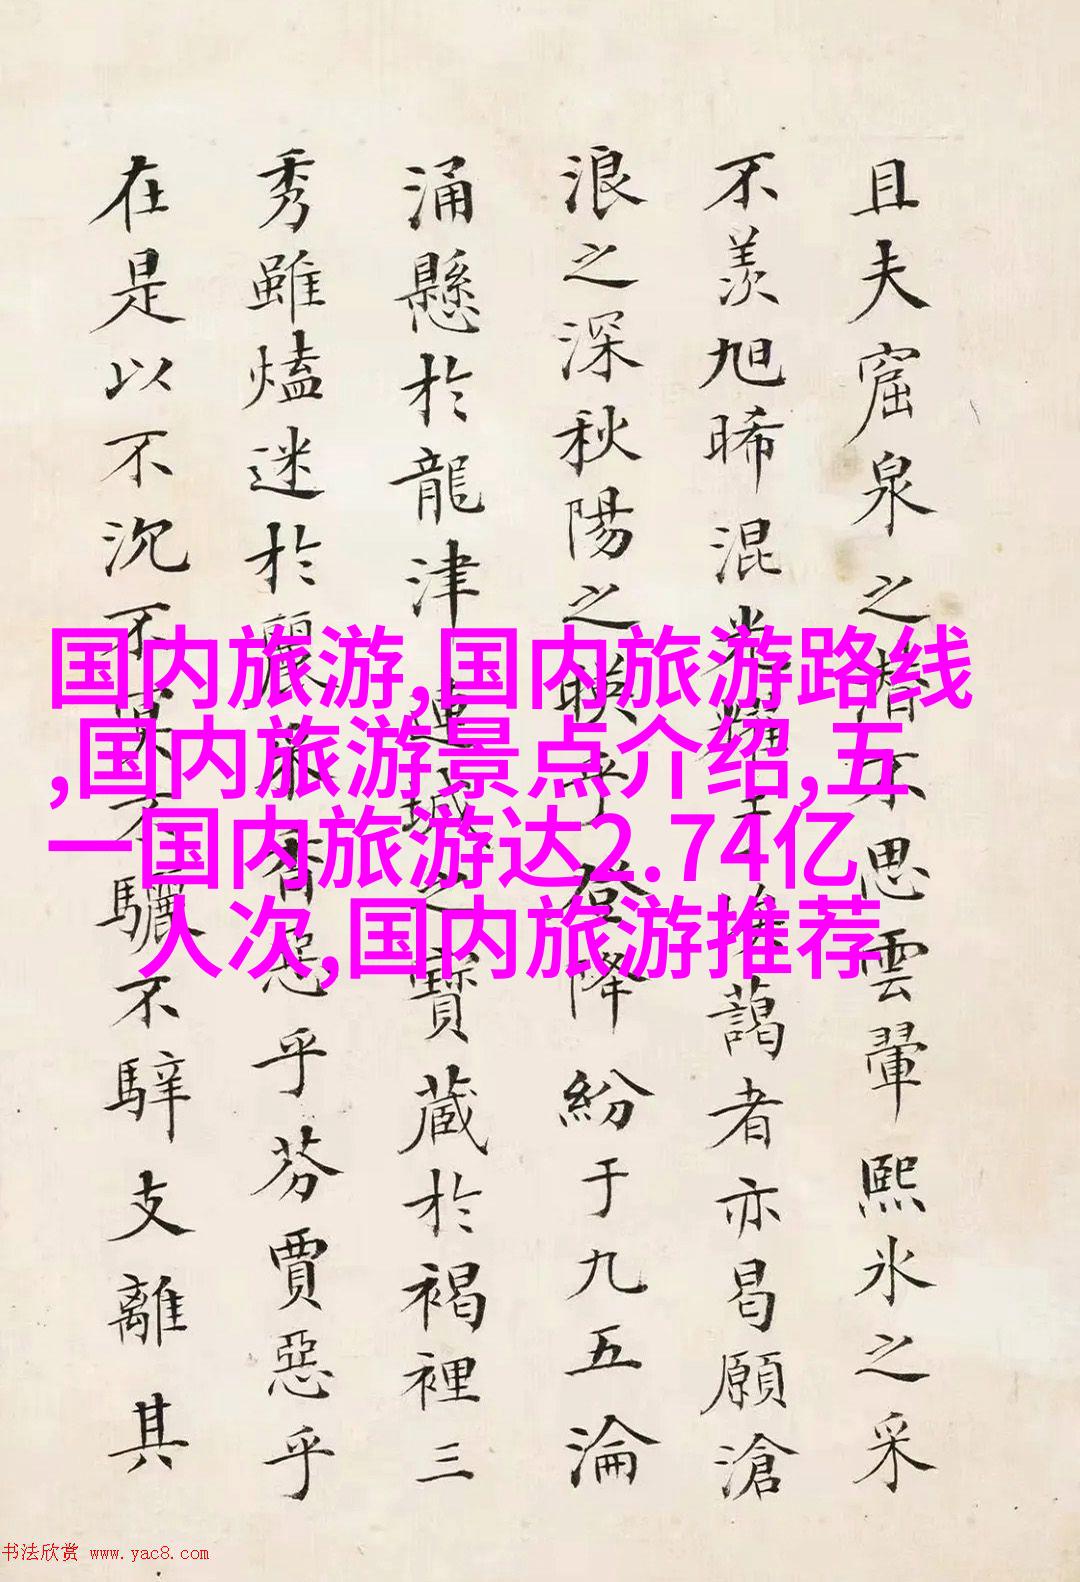 且夫窟泉之䐉不思雲翬熙氷之采
不羡旭晞混光耀于埃藹者亦曷願滄
浪之深秋陽之映乎登降紛于九五淪
涌懸於龍津連城之寶藏於褐裡三
秀雖𤏸迷於麗家香惡乎芬賈惡乎
在是以不沉不某不驪不騂支離其
国内旅游,国内旅游路线
,国内旅游景点介绍,五
一国内旅游达2.74亿
人次,国内旅游推荐
书法欣赏 www.yac8.com